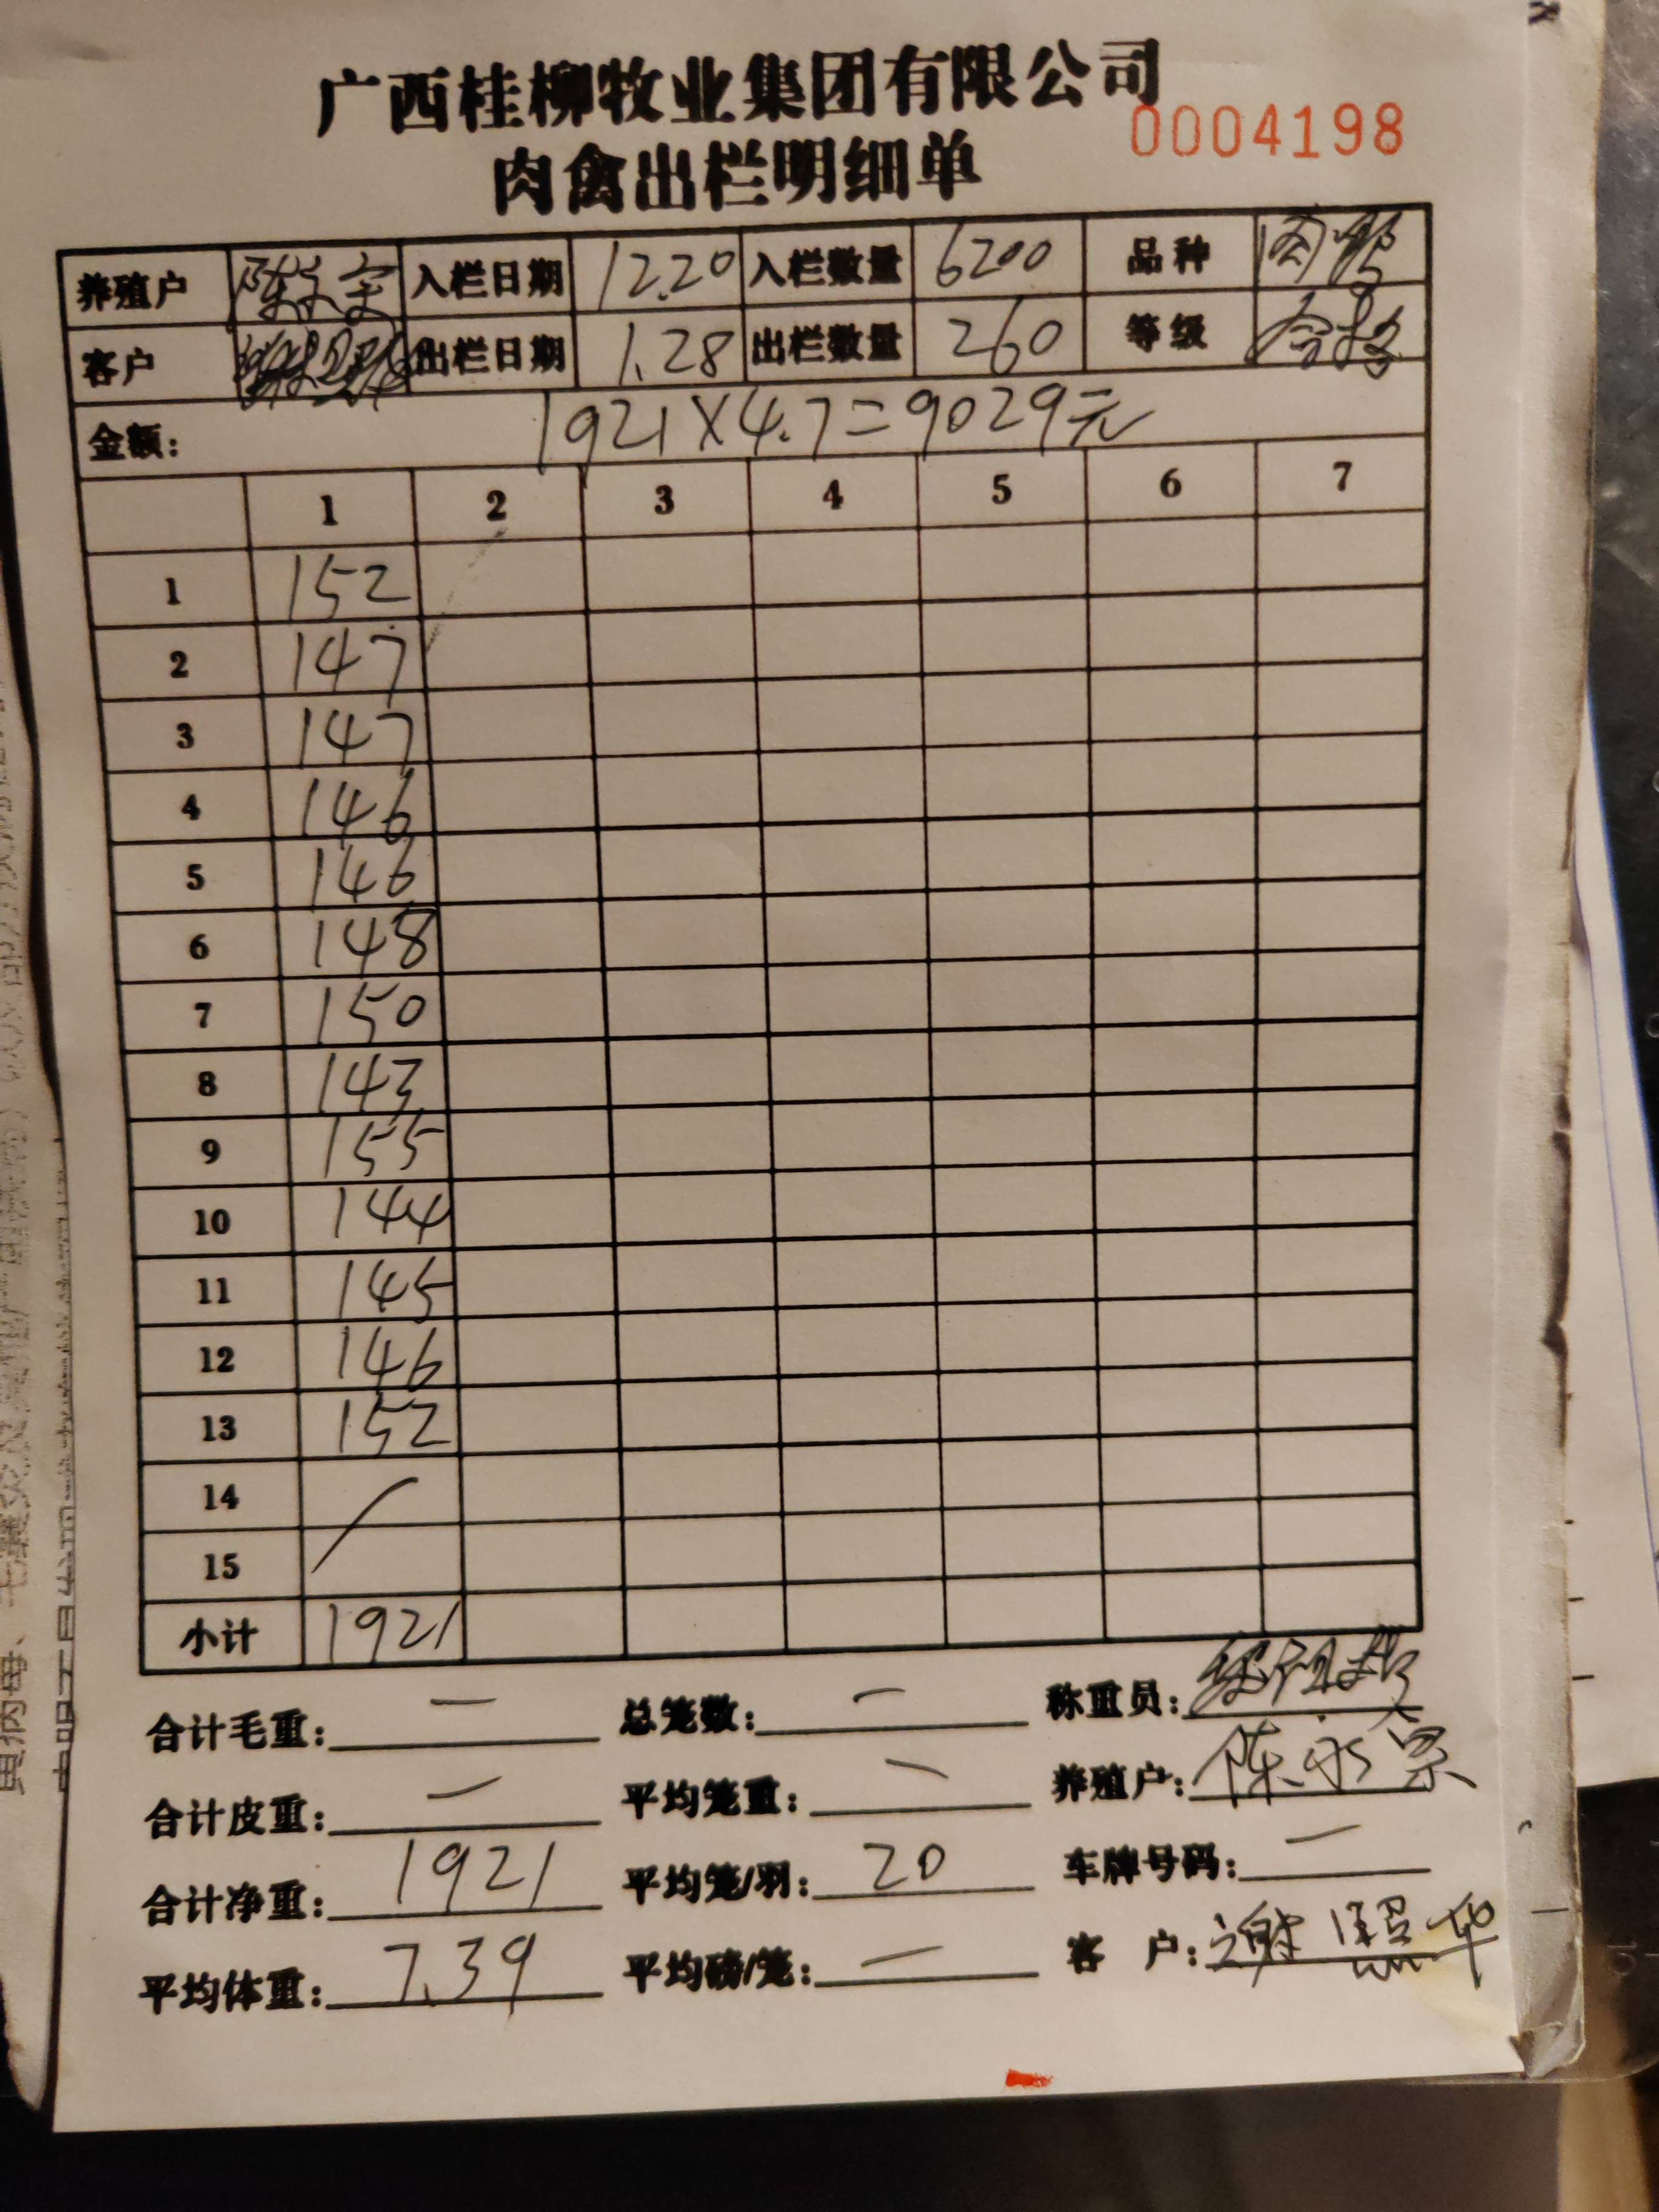 广西桂柳牧业集团有限公司
0004198
肉禽出栏明细单
养殖户 陈永宗 入栏日期 12.20 入栏数量 6200 品种 肉鸭
客户 出栏日期 1.28 出栏数量 260 等级 合格
金额: 1921×4.7=9029元
1 2 3 4 5 6 7
1 152
2 147
3 147
4 146
5 146
6 148
7 150
8 143
9 155
10 144
11 145
12 146
13 152
14
15
小计 1921
合计毛重: — 总笼数: — 称重员:
合计皮重: — 平均笼重: — 养殖户: 陈永宗
合计净重: 1921 平均笼/羽: 20 车牌号码: —
平均体重: 7.39 平均磅/笼: — 客 户: 谢照华